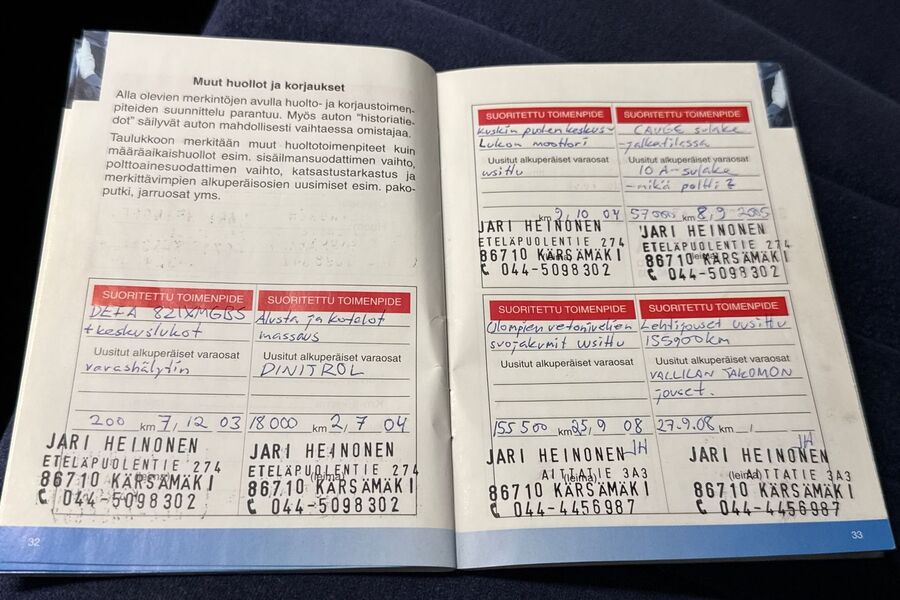 Muut huollot ja korjaukset
Alla olevien merkintöjen avulla huolto- ja korjaustoimen-
piteiden suunnittelu parantuu. Myös auton "historiatie-
dot" säilyvät auton mahdollisesti vaihtaessa omistajaa.
Taulukkoon merkitään muut huoltotoimenpiteet kuin
määräaikaishuollot esim. sisäilmansuodattimen vaihto,
polttoainesuodattimen vaihto, katsastustarkastus ja
merkittävimpien alkuperäisosien uusimiset esim. pako-
putki, jarruosat yms.
SUORITETTU TOIMENPIDE
DEFA
+keskuslukot
Uusitut alkuperäiset varaosat
varashälytin
200 km 7, 12 03
JARI HEINONEN
ETELÄPUOLENTIE 274
86710 KÄRSÄMÄKI
044-5098302
SUORITETTU TOIMENPIDE
Alusta ja kotelot
massaus
Uusitut alkuperäiset varaosat
DINITROL
18000 km 2, 7 04
JARI HEINONEN
ETELÄPUOLENTIE 274
86710 KÄRSÄMÄKI
044-5098302
32
SUORITETTU TOIMENPIDE
kuskin puolen keskus-
Lukon moottori
Uusitut alkuperäiset varaosat
usittu
km 9, 10 04
JARI HEINONEN
ETELÄPUOLENTIE 274
86710 KÄRSÄMÄKI
044-5098302
SUORITETTU TOIMENPIDE
sulake
-jalkatilassa
Uusitut alkuperäiset varaosat
10 A-sulake
-mikä poltti?
57000 km 8, 9 2005
JARI HEINONEN
ETELÄPUOLENTIE 274
86710 KÄRSÄMÄKI
044-5098302
SUORITETTU TOIMENPIDE
Ulompien vetonivelien
suojakumit uusittu
Uusitut alkuperäiset varaosat
155500 km 25, 9 08
JH
JARI HEINONEN
AITTATIE 3A3
(leima)
86710 KÄRSÄMÄKI
044-4456987
SUORITETTU TOIMENPIDE
Lehtijouset uusittu
155900km
Uusitut alkuperäiset varaosat
VALLILAN TAKOMON
jouset.
27.9.08 km
JH
JARI HEINONEN
AITTATIE 3A3
(leima)
86710 KÄRSÄMÄKI
044-4456987
33